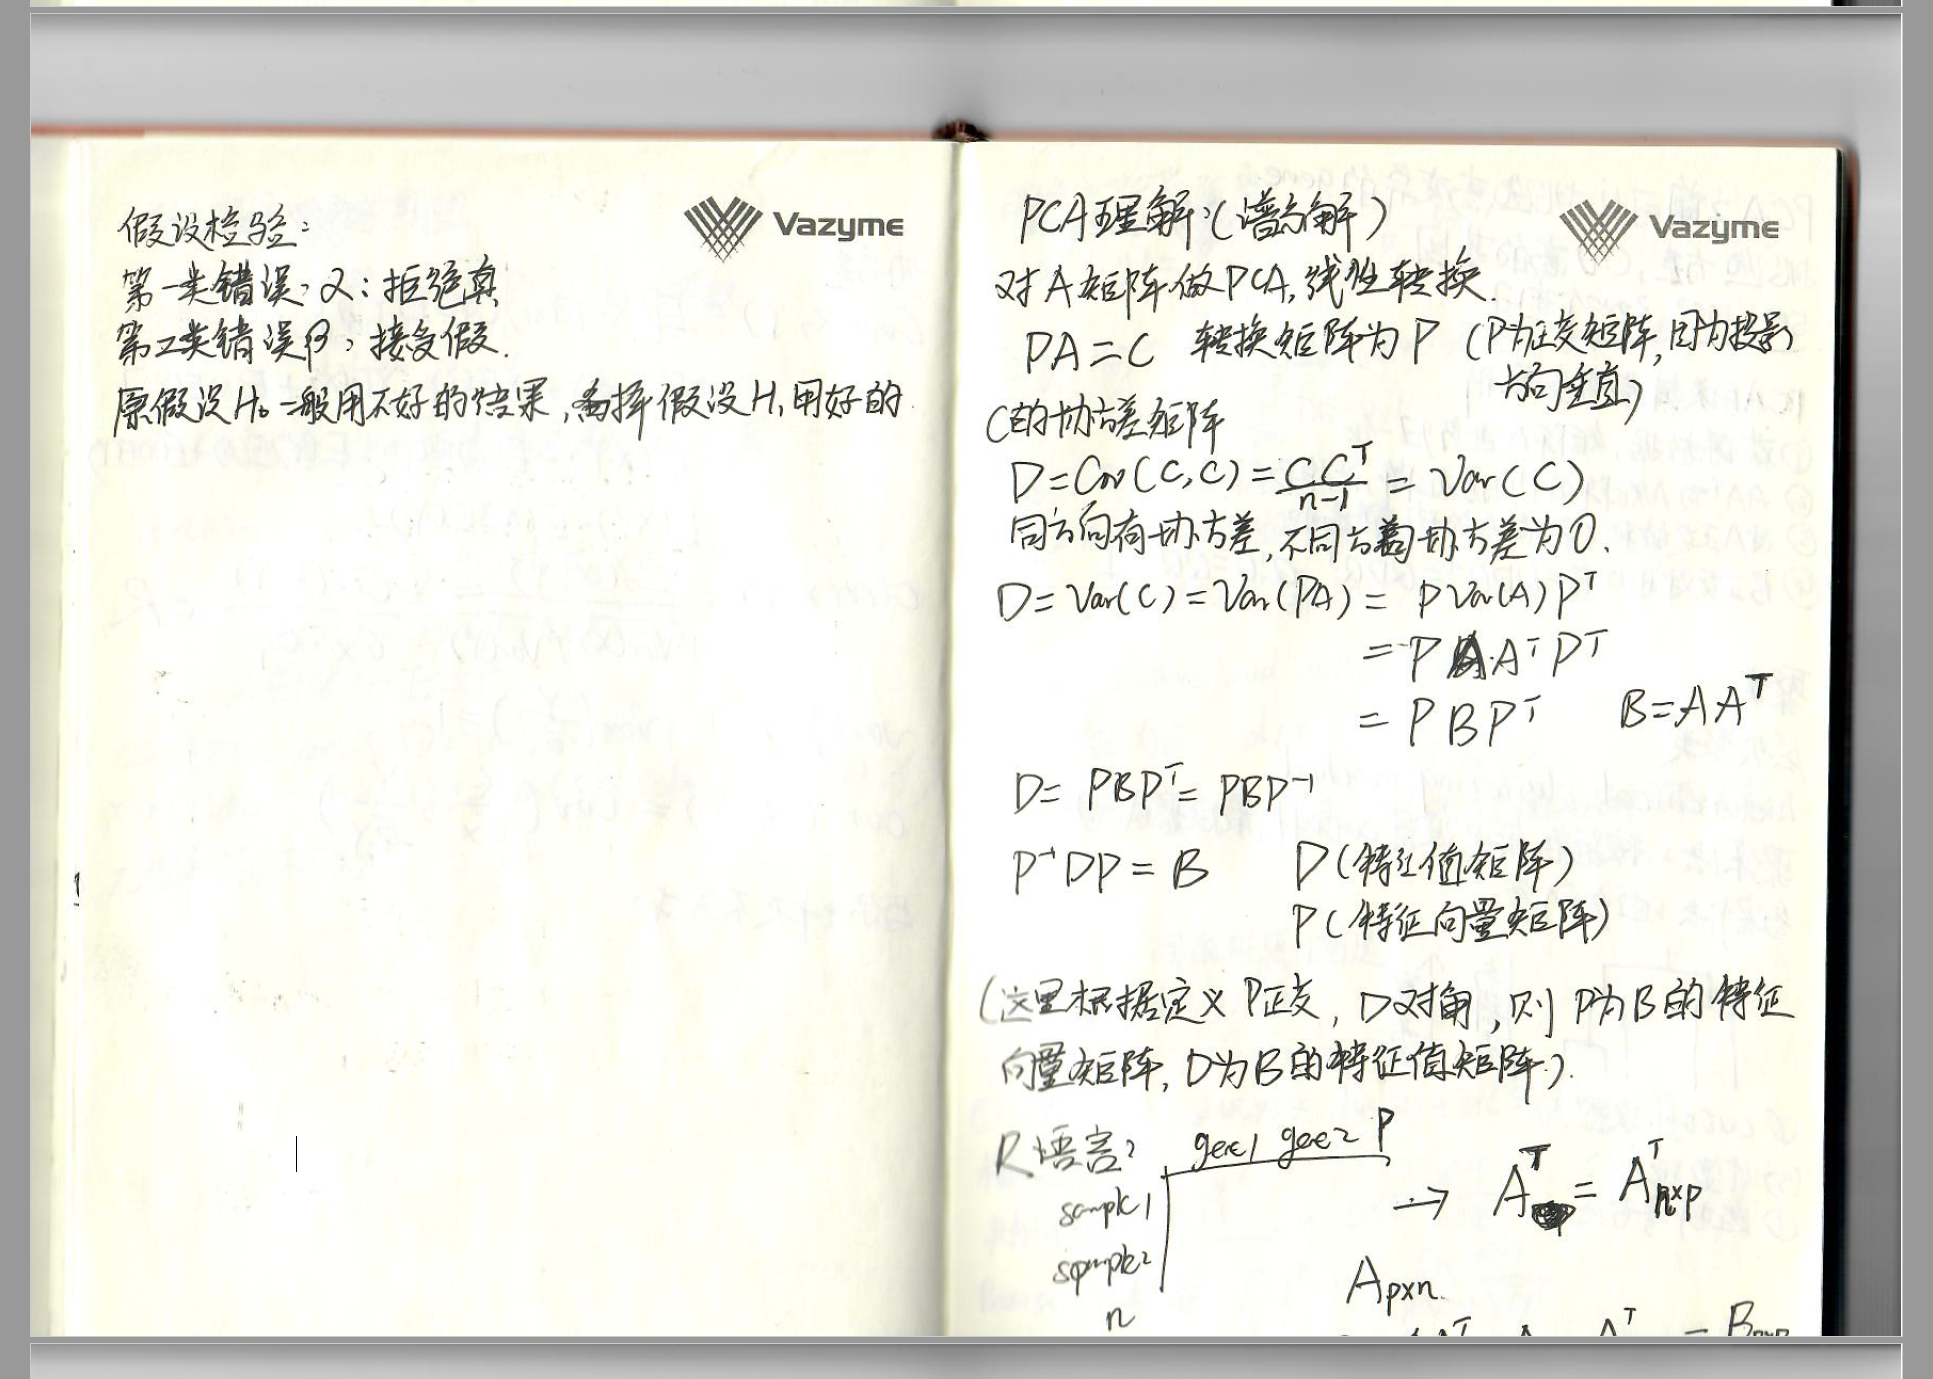 Vazyme
假设检验:
第一类错误,α:拒绝真
第二类错误β,接受假.
原假设H₀一般用不好的结果,备择假设H₁用好的
Vazyme
PCA理解:(谱分解)
对A矩阵做PCA,线性转换.
PA=C 转换矩阵为P (P为正交矩阵,因为投影
方向垂直)
C的协方差矩阵
D=Cov(C,C)=CCᵀ/n-1=Var(C)
同方向有协方差,不同方向协方差为0.
D=Var(C)=Var(PA)=PVar(A)Pᵀ
=PA·AᵀPᵀ
=PBPᵀ B=AAᵀ
D=PBPᵀ=PBP⁻¹
P⁻¹DP=B D(特征值矩阵)
P(特征向量矩阵)
(这里根据定义P正交,D对角,则P为B的特征
向量矩阵,D为B的特征值矩阵).
R语言:
gene1 gene2 P
sample1
→ Aᵀ=Aᵀn×p
sample2
Ap×n.
n